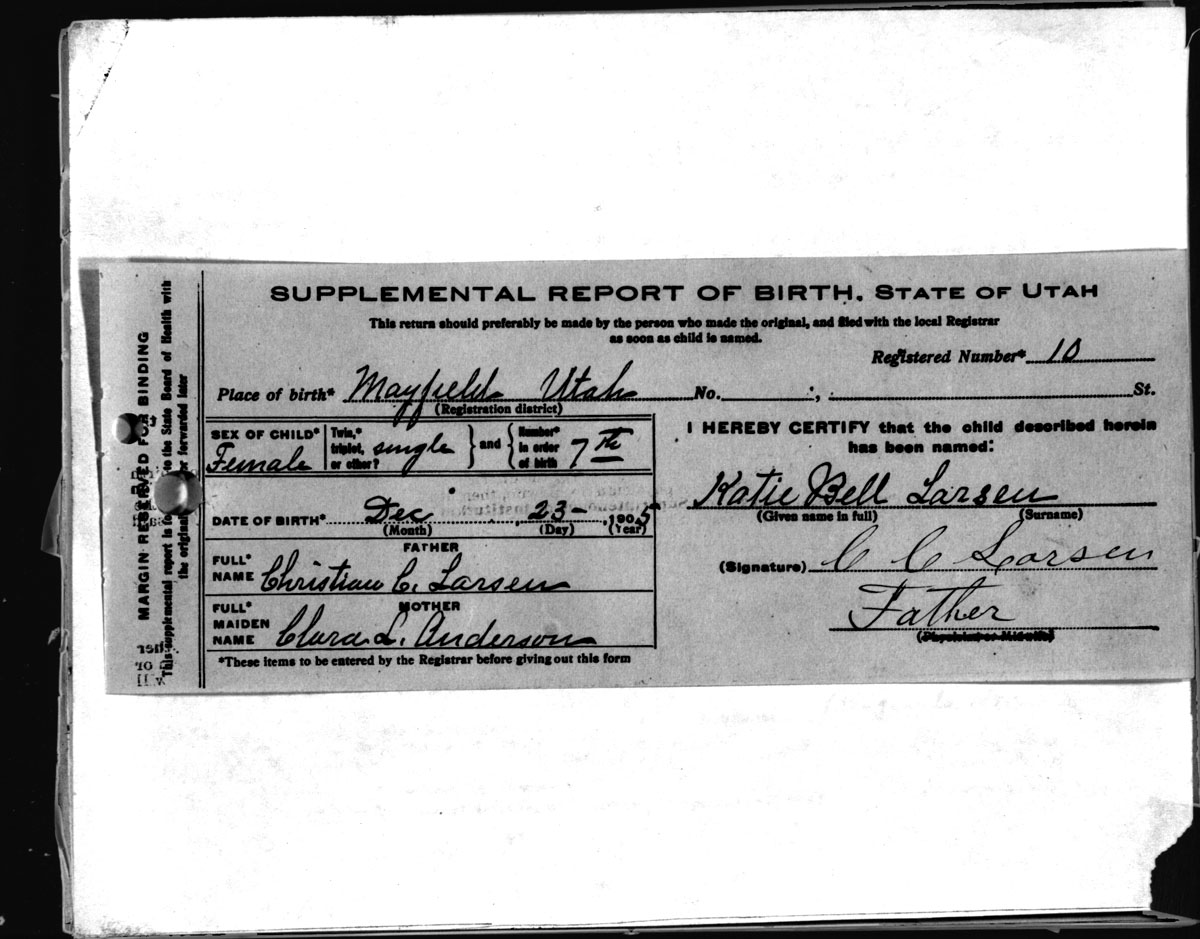 SUPPLEMENTAL REPORT OF BIRTH, STATE OF UTAH
This return should preferably be made by the person who made the original, and filed with the local Registrar
as soon as child is named.
Registered Number* 10
Place of birth* Mayfield Utah No. , St.
(Registration district)
SEX OF CHILD* Female
Twin,* triplet, or other? single and Number* in order of birth 7th
DATE OF BIRTH* Dec 23- 1905
(Month) (Day) (Year)
FATHER
FULL* NAME Christian C. Larsen
MOTHER
FULL* MAIDEN NAME Clara L. Anderson
*These items to be entered by the Registrar before giving out this form
I HEREBY CERTIFY that the child described herein
has been named:
Katie Bell Larsen
(Given name in full) (Surname)
(Signature) C C Larsen
Father
(Physician or Midwife)
MARGIN RESERVED FOR BINDING
This supplemental report is to the State Board of Health with
the original or forwarded later